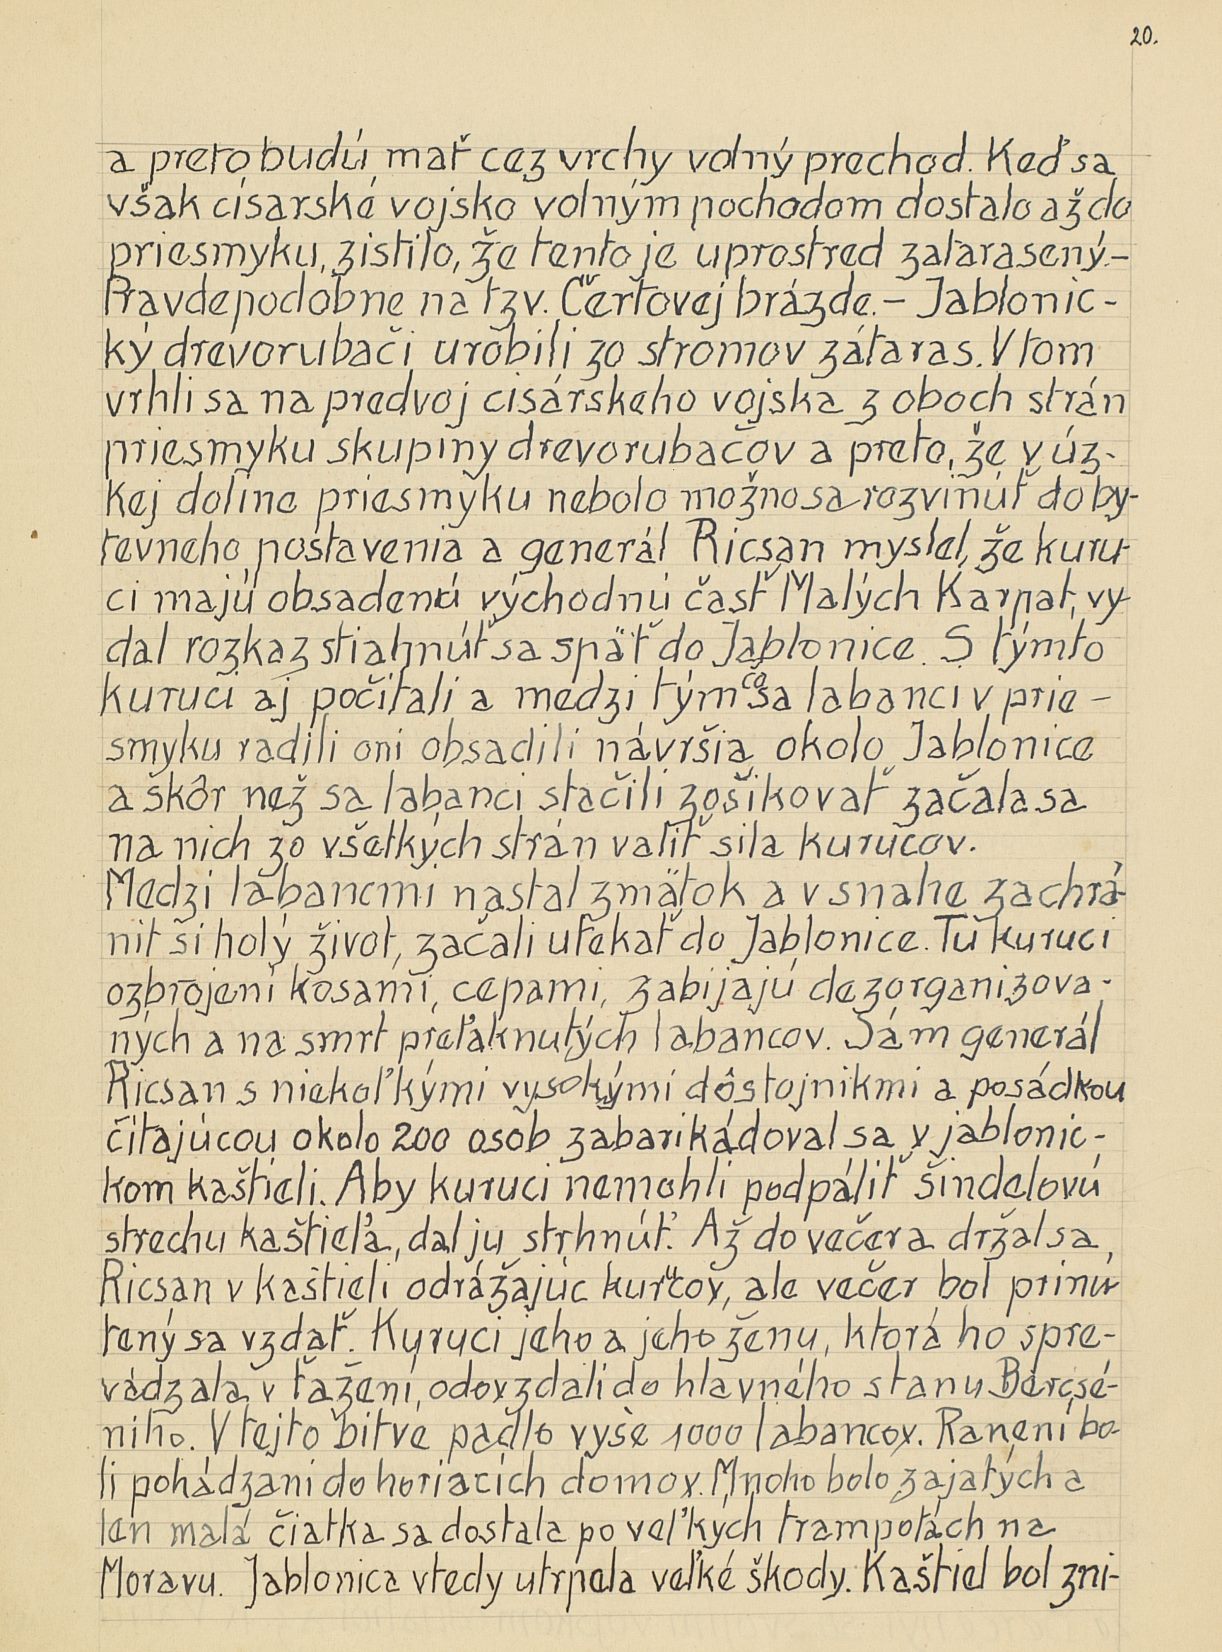 20.
a preto budú mať cez vrchy volný prechod. Keď sa
však cisarské vojsko volným pochodom dostalo až do
priesmyku, zistilo, že tento je uprostred zatarasený.–
Pravdepodobne na tzv. Čertovej brázde.– Jablonic-
ký drevorubači urobili zo stromov zátaras. V tom
vrhli sa na predvoj cisárskeho vojska z oboch strán
priesmyku skupiny drevorubačov a preto, že v úz-
kej doline priesmyku nebolo možno sa rozvinúť do by-
tevneho postavenia a generál Ricsan myslel, že kuru-
ci majú obsadenú východnú časť Malých Karpat, vy-
dal rozkaz stiahnúť sa späť do Jablonice. S týmto
kuruci aj počítali a medzi tým čo sa labanci v prie-
smyku radili oni obsadili návršia okolo Jablonice
a škôr než sa labanci stačili zošikovať začala sa
na nich zo všetkých strán valiť sila kurucov.
Medzi labancmi nastal zmätok a v snahe zachrá-
nit si holý život, začali utekať do Jablonice. Tu kuruci
ozbrojení kosami, cepami, zabijajú dezorganizova-
ných a na smrt preťaknutých labancov. Sám generál
Ricsan s niekoľkými vysokými dôstojnikmi a posádkou
čítajúcou okolo 200 osôb zabarikádoval sa v jablonic-
kom kaštieli. Aby kuruci nemohli podpáliť šindelovú
strechu kaštieľa, dal ju strhnúť. Až do večera držal sa
Ricsan v kaštieli odrážajúc kurucov, ale večer bol prinú-
tený sa vzdať. Kuruci jeho a jeho ženu, ktorá ho spre-
vádzala v ťažení, odovzdali do hlavného stanu Bercsé-
niho. V tejto bitve padlo vyše 1000 labancov. Ranení bo-
li pohádzaní do horiacich domov. Mnoho bolo zajatých a
len malá čiatka sa dostala po veľkých trampotách na
Moravu. Jablonica vtedy utrpela veľké škody. Kaštiel bol zni-